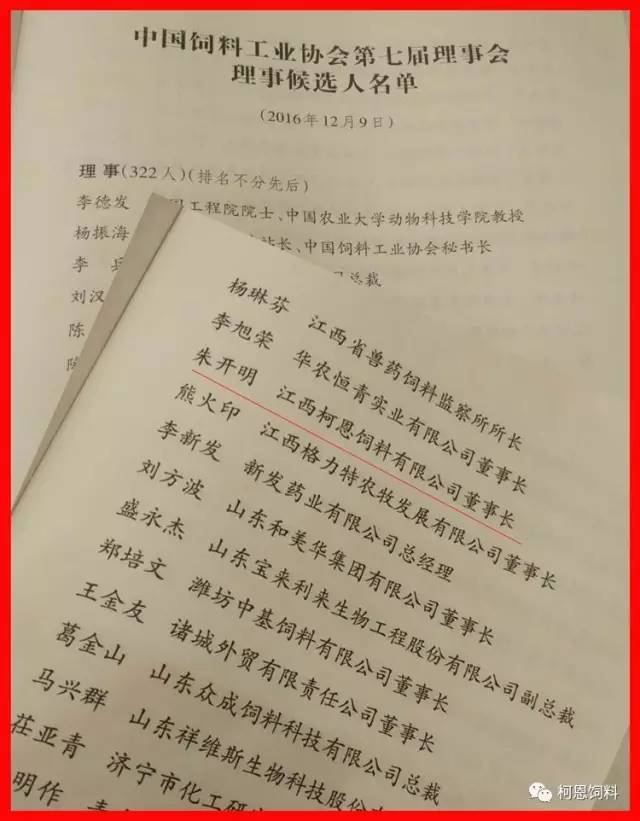 中国饲料工业协会第七届理事会
理事候选人名单
(2016年12月9日)
理事(322人)(排名不分先后)
李德发 工程院院士、中国农业大学动物科技学院教授
杨振海 站长、中国饲料工业协会秘书长
李 总裁
刘汉
陈
杨琳芬 江西省兽药饲料监察所所长
李旭荣 华农恒青实业有限公司董事长
朱开明 江西柯恩饲料有限公司董事长
熊火印 江西格力特农牧发展有限公司董事长
李新发 新发药业有限公司总经理
刘方波 山东和美华集团有限公司董事长
盛永杰 山东宝来利来生物工程股份有限公司副总裁
郑培文 潍坊中基饲料有限公司董事长
王金友 诸城外贸有限责任公司董事长
葛金山 山东众成饲料科技有限公司董事长
马兴群 山东祥维斯生物科技股份有限公司总裁
茌亚青 济宁市化工研
明作
柯恩饲料